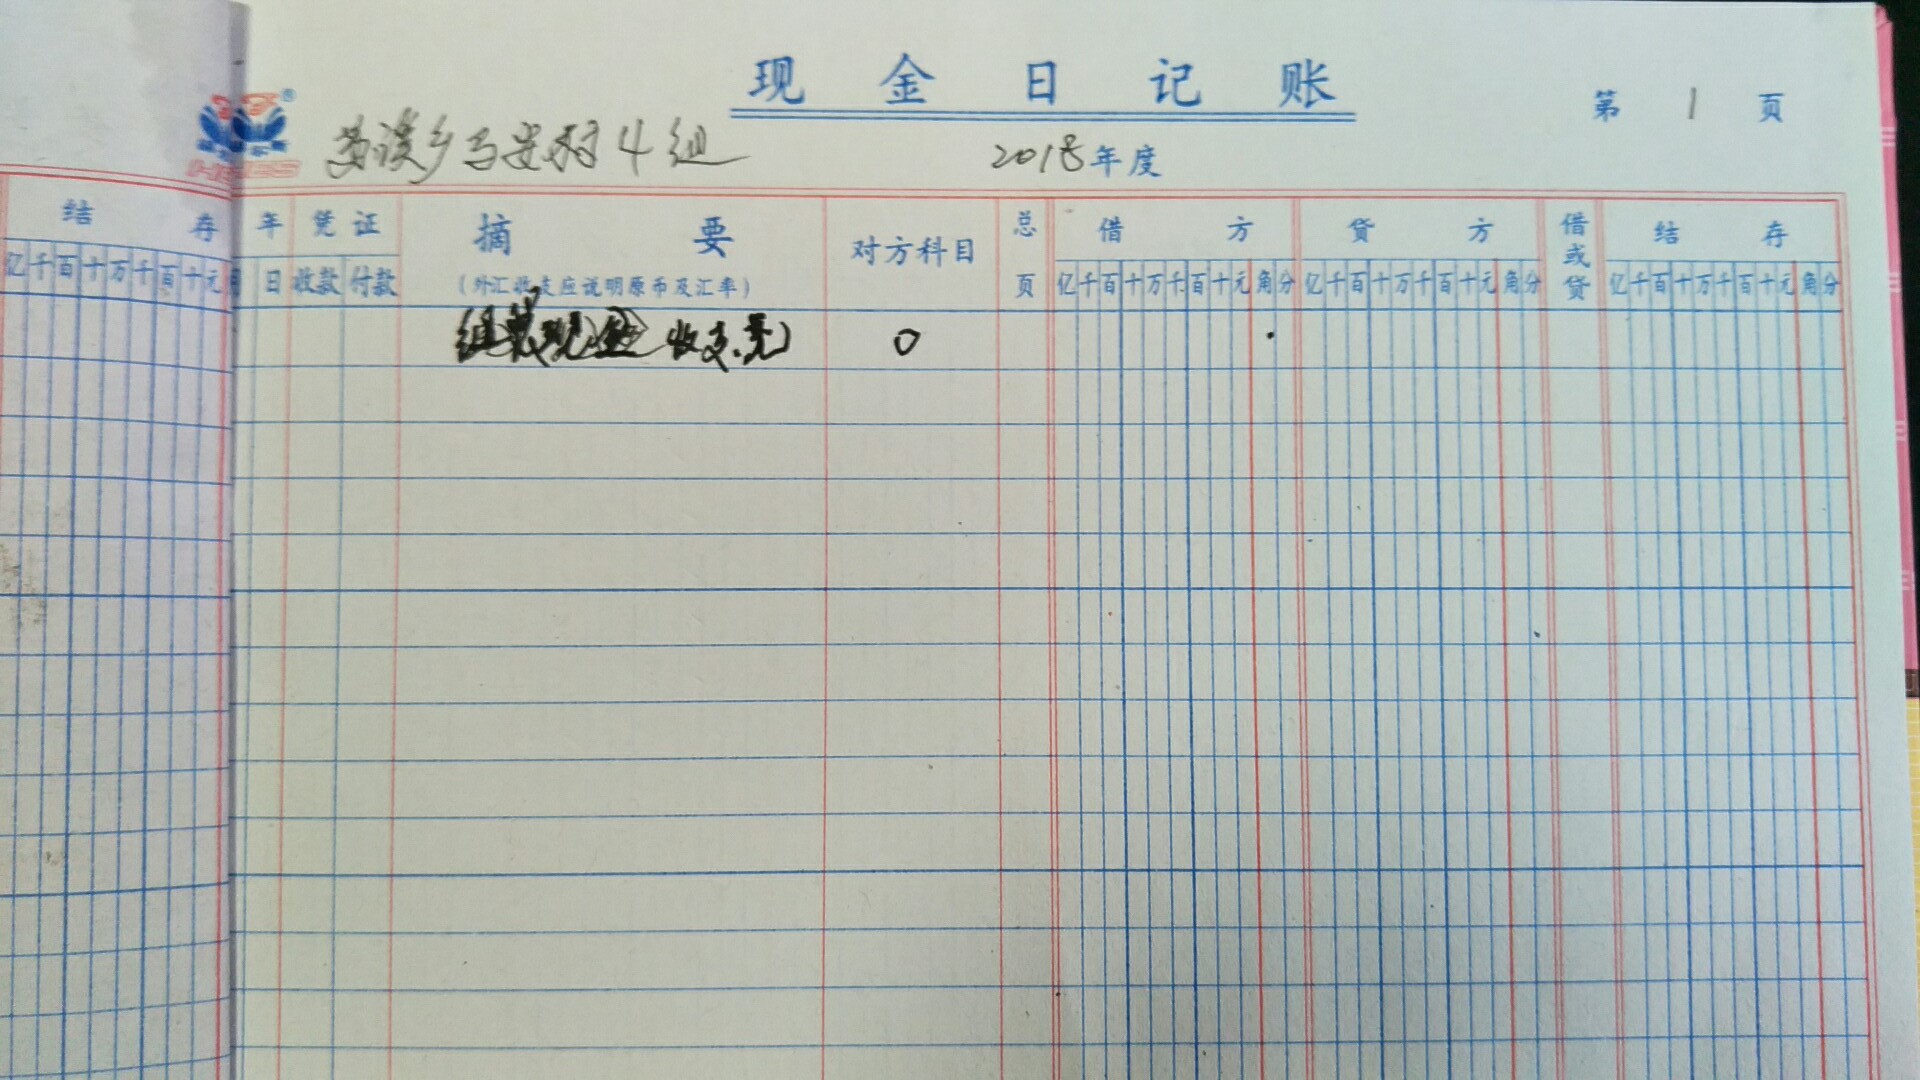 现金日记账
第 1 页
乡马安村4组
2018年度
结存
亿千百十万千百十元
年
日
凭证
收款 付款
摘要
(外汇收支应说明原币及汇率)
对方科目
总页
借方
亿千百十万千百十元角分
贷方
亿千百十万千百十元角分
借或贷
结存
亿千百十万千百十元角分
组 现金 收支无 0